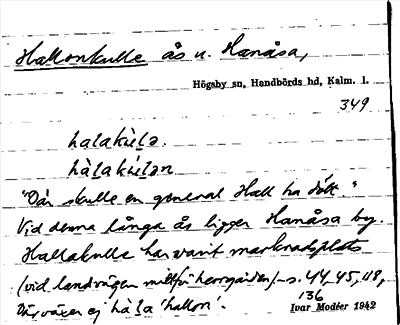 Hallonkulle ås n. Hanåsa,
Högsby sn, Handbörds hd, Kalm. l.
349
halakùlə.
hàlakúlən
"Där skulle en general Hall ha dött."
Vid denna långa ås ligger Hanåsa by.
Hallakulle har varit marknadsplats
(vid landsvägen mittför herrgården)- s. 44, 45, 118,
136
Där växer ej hàla 'hallon'.
Ivar Modéer 1942